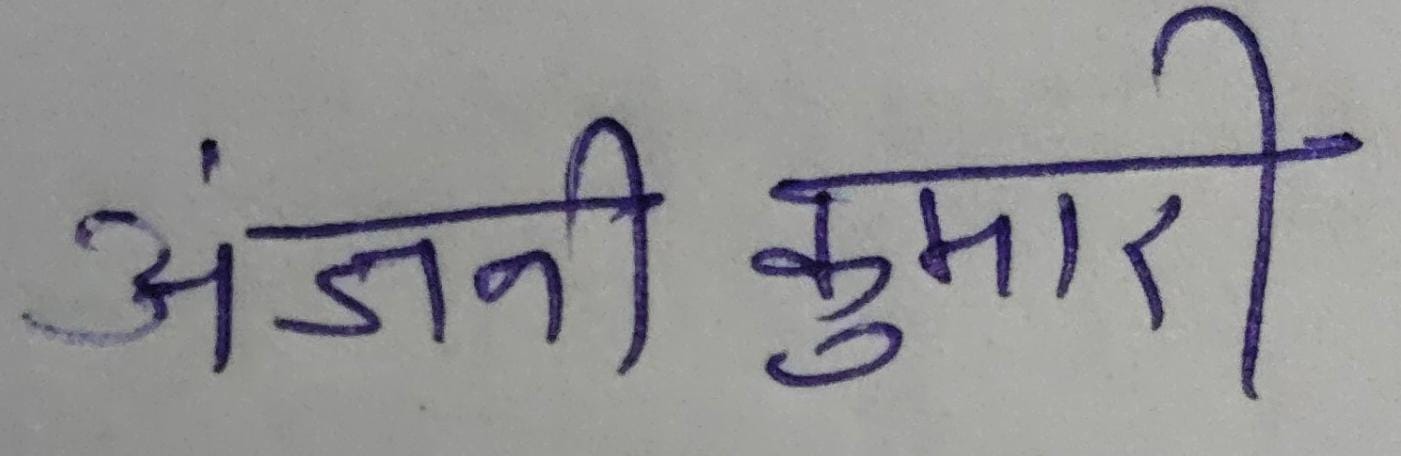 अंजनी कुमारी